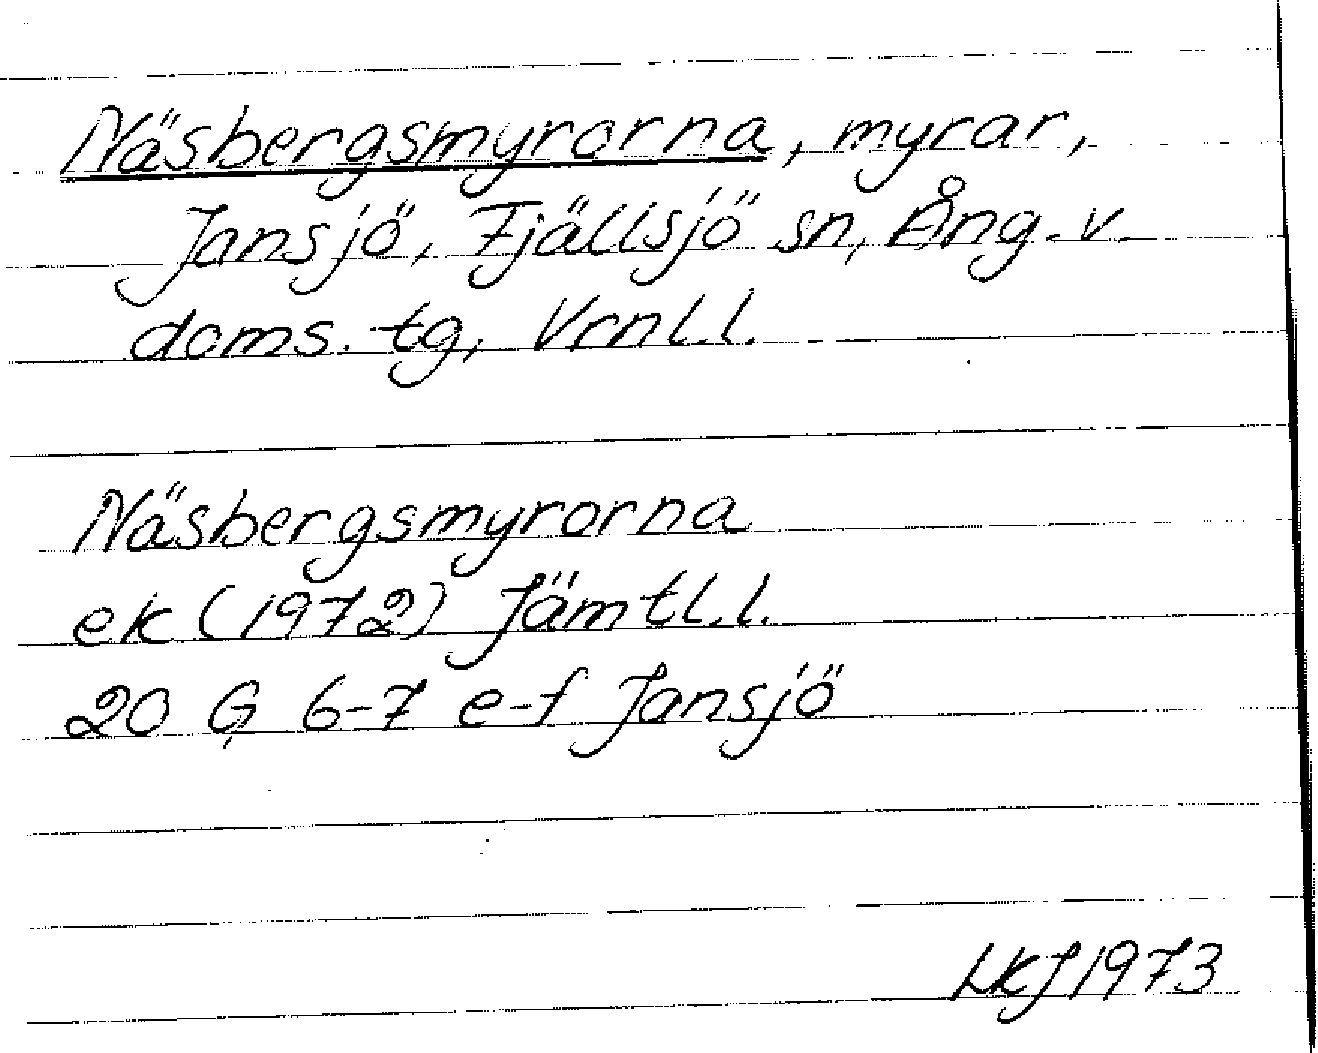 Näsbergsmyrorna, myrar,
Jansjö, Fjällsjö sn, Ång. v.
doms. tg, Vrnl.l.
Näsbergsmyrorna
ek (1972) Jämtl.l.
20 G 6-7 e-f Jansjö
LKJ 1973